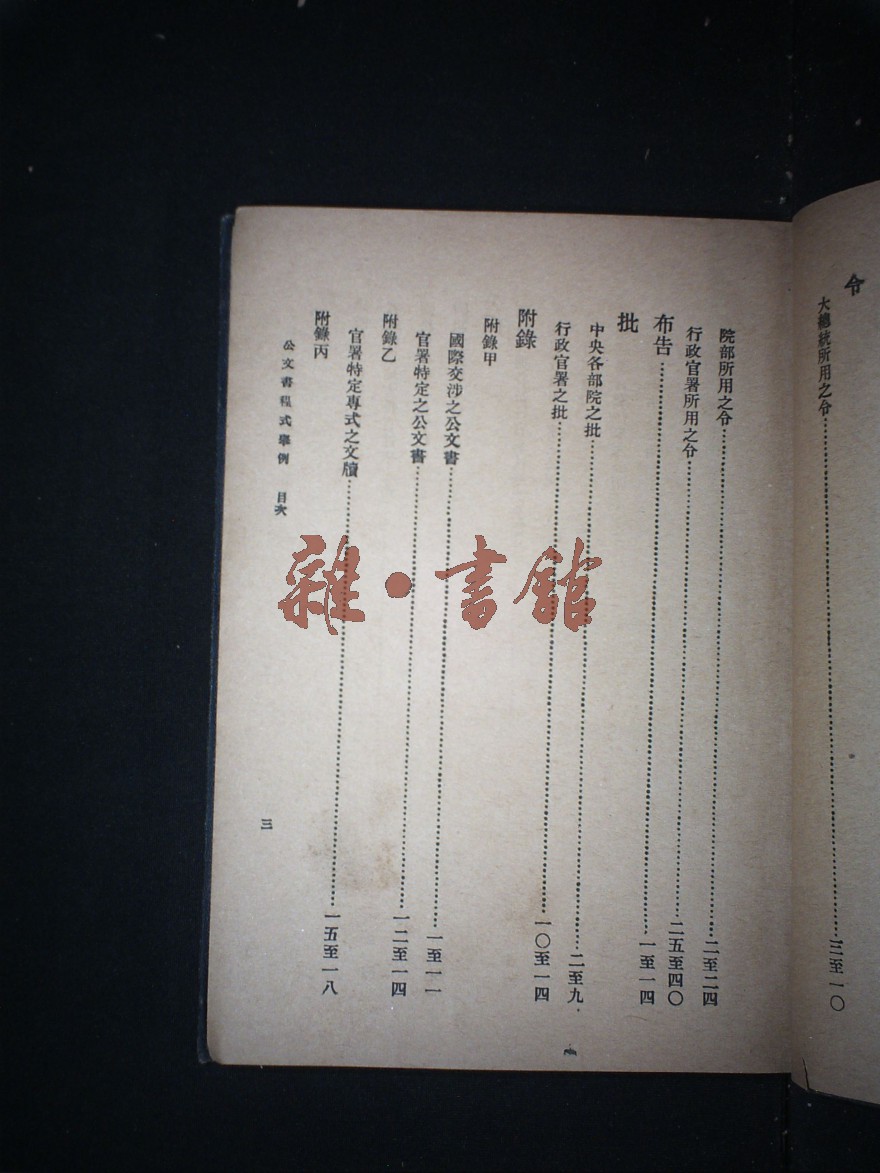 令
大總統所用之令……三至一〇
院部所用之令……二至二四
行政官署所用之令……二五至四〇
布告……一至一四
批
中央各部院之批……二至九
行政官署之批……一〇至一四
附錄
附錄甲
國際交涉之公文書……一至一一
官署特定之公文書……一二至一四
附錄乙
官署特定專式之文牘……一五至一八
附錄丙
公文書程式舉例 目次
三
雜·書館